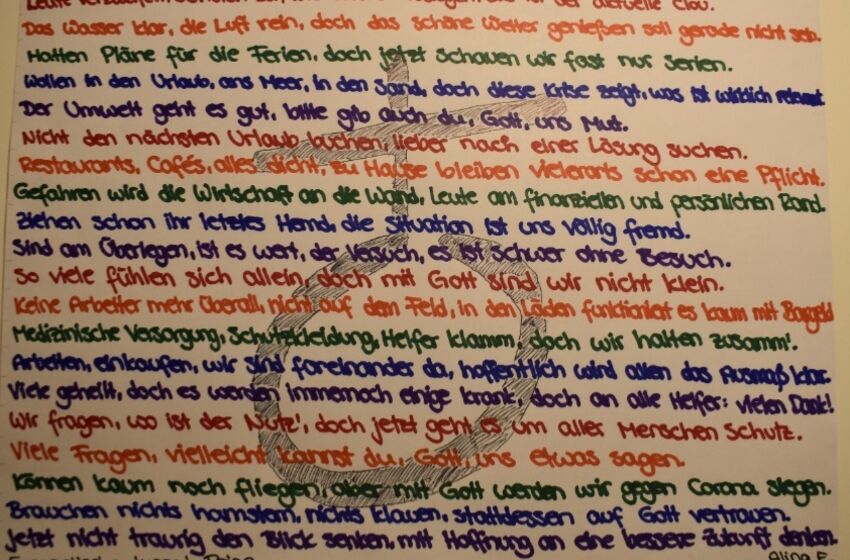 der aktuelle Clou.
Das Wasser klar, die Luft rein, doch das schöne Wetter genießen soll gerade nicht sein.
Hatten Pläne für die Ferien, doch jetzt schauen wir fast nur Serien.
Wollen in den Urlaub, ans Meer, in den Sand, doch diese Krise zeigt, was ist wirklich relevant.
Der Umwelt geht es gut, bitte gib auch du, Gott, uns Mut.
Nicht den nächsten Urlaub buchen, lieber nach einer Lösung suchen.
Restaurants, Cafés, alles dicht, zu Hause bleiben vielerorts schon eine Pflicht.
Gefahren wird die Wirtschaft an die Wand, Leute am finanziellen und persönlichen Rand.
Ziehen schon ihr letztes Hemd, die Situation ist uns völlig fremd.
Sind am Überlegen, ist es wert, der Versuch, es ist schwer ohne Besuch.
So viele fühlen sich allein, doch mit Gott sind wir nicht klein.
Keine Arbeiter mehr überall, nicht auf dem Feld, in den Läden funktioniert es kaum mit Bargeld
Medizinische Versorgung, Schutzkleidung, Helfer klamm, doch wir halten zusamm'.
Arbeiten, einkaufen, wir sind füreinander da, hoffentlich wird allen das Ausmaß klar.
Viele geheilt, doch es werden immernoch einige krank, doch an alle Helfer: vielen Dank!
Wir fragen, wo ist der Nutz', doch jetzt geht es um aller Menschen Schutz.
Viele Fragen, vielleicht kannst du, Gott, uns etwas sagen.
Können kaum noch fliegen, aber mit Gott werden wir gegen Corona siegen.
Brauchen nichts hamstern, nichts klauen, stattdessen auf Gott vertrauen.
Jetzt nicht traurig den Blick senken, mit Hoffnung an eine bessere Zukunft denken.
Alina F.